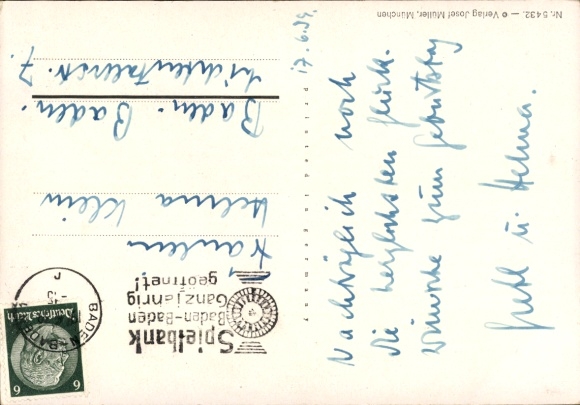 Nr. 5432. — © Verlag Josef Müller, München
17.6.39.
Nachträglich noch
die herzlichsten Glück-
wünsche zum Geburtstag
Gretl u. Helma.
printed in germany
Spielbank
Baden-Baden
Ganzjährig
geöffnet!
BADEN-BADEN
Deutsches Reich
6
6
Fräulein
Helma Klein
Baden-Baden.
Lichtentalerstr. 7.